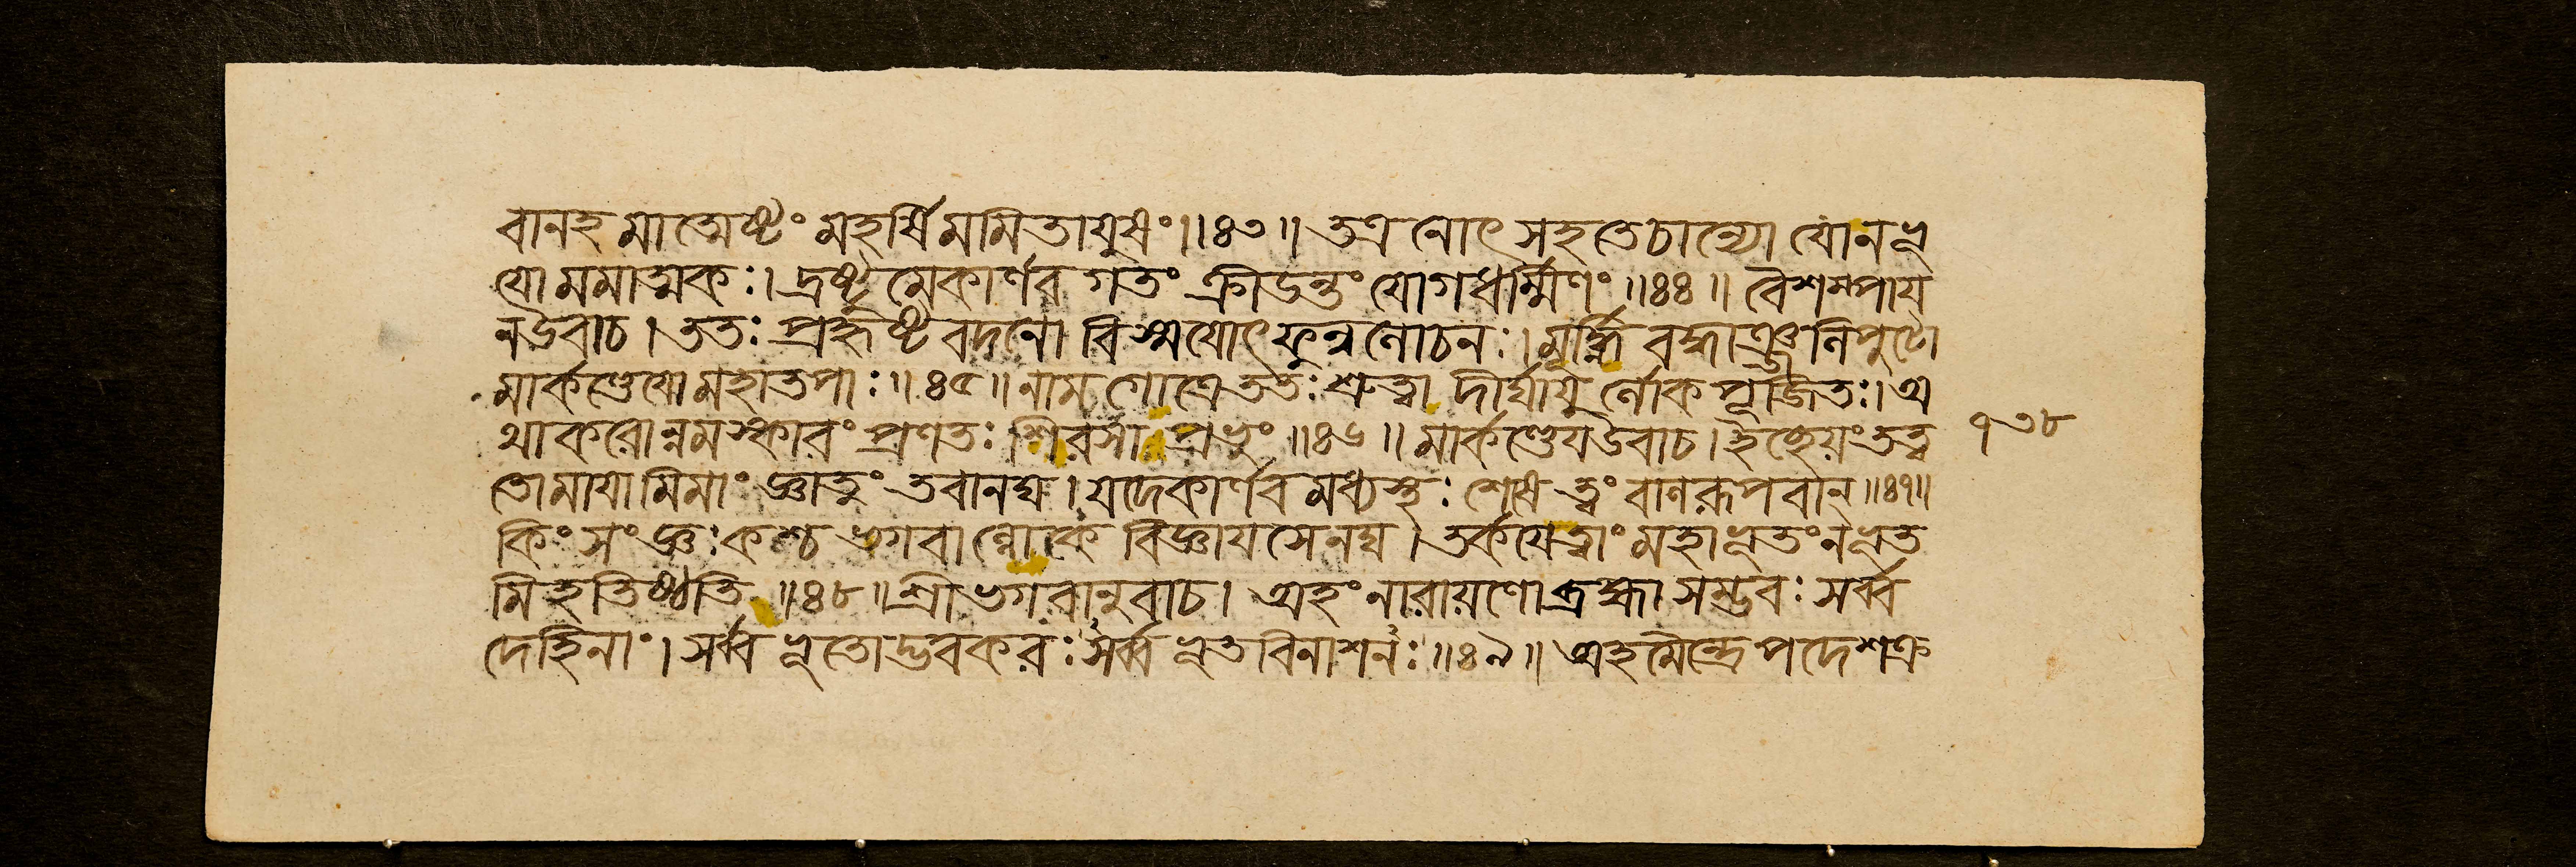 বানহমাত্মেষ্টং মহর্ষিমমিতাযুষং॥৪৩॥তত্র নোৎসহতেচান্যো যোনভূ
যোমমাত্মকঃ। দ্রষ্টুমেকার্ণব গতং ক্রীডন্তং যোগধর্ম্মিণং॥৪৪॥ বৈশম্পায
নউবাচ।ততঃ প্রহৃষ্টবদনো বিস্মযোৎফুল্ললোচনঃ।মূর্দ্ধ্নি বদ্ধাঞ্জলিপুটো
মার্কণ্ডেযো মহাতপাঃ॥৪৫॥নাম গোত্রেততঃ শ্রুত্বা দীর্ঘাযু র্লোকপূজিতঃ।অ
থাকরোন্নমস্কারং প্রণতঃ শিরসা প্রভুং॥৪৬॥ মার্কণ্ডেযউবাচ।ইচ্ছেয়ংতত্ব
তোমাযামিমাং জ্ঞাতুং তবানঘ।যদেকার্ণবমধ্যস্থঃ শেষে ত্বং বালরূপবান্॥৪৭॥
কিং সংজ্ঞঃকশ্চ ভগবাল্লোকে বিজ্ঞাযসেনঘ।তর্কযেত্বাং মহাভূতংনভূত
মিহতিষ্ঠতি॥৪৮॥শ্রীভগবানুবাচ। অহংনারায়ণোব্রহ্মা সম্ভবঃ সর্ব্ব
দেহিনাং।সর্ব্বভূতোদ্ভবকরঃ সর্ব্বভূতবিনাশনঃ॥৪৯॥ অহমৈন্দ্রেপদেশক্র
১৩৮